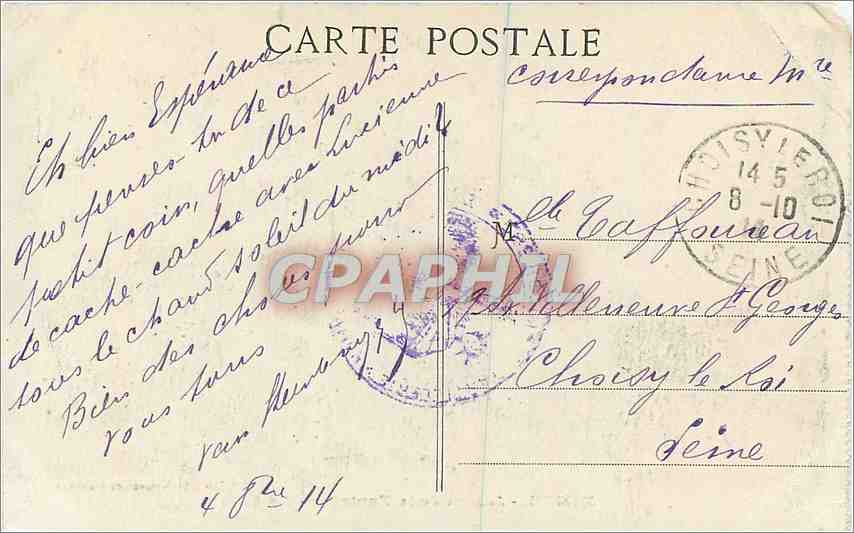 CARTE POSTALE
Correspondance Mre
Eh bien Espérance
que penses-tu de ce
petit coin, quelles parties
de cache-cache avec Lucienne
sous le chaud soleil du midi
Bien des choses pour
vous tous
4 8bre 14
CHOISY LE ROI
14 5
8 -10
14
SEINE
M lle Taffoureau
Villeneuve St Georges
Choisy le Roi
Seine
CPAPHIL